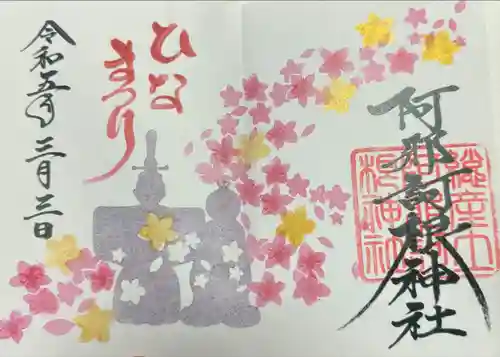 阿邪訶根神社
総産土
根神社
ひな
まつり
令和五年 三月三日